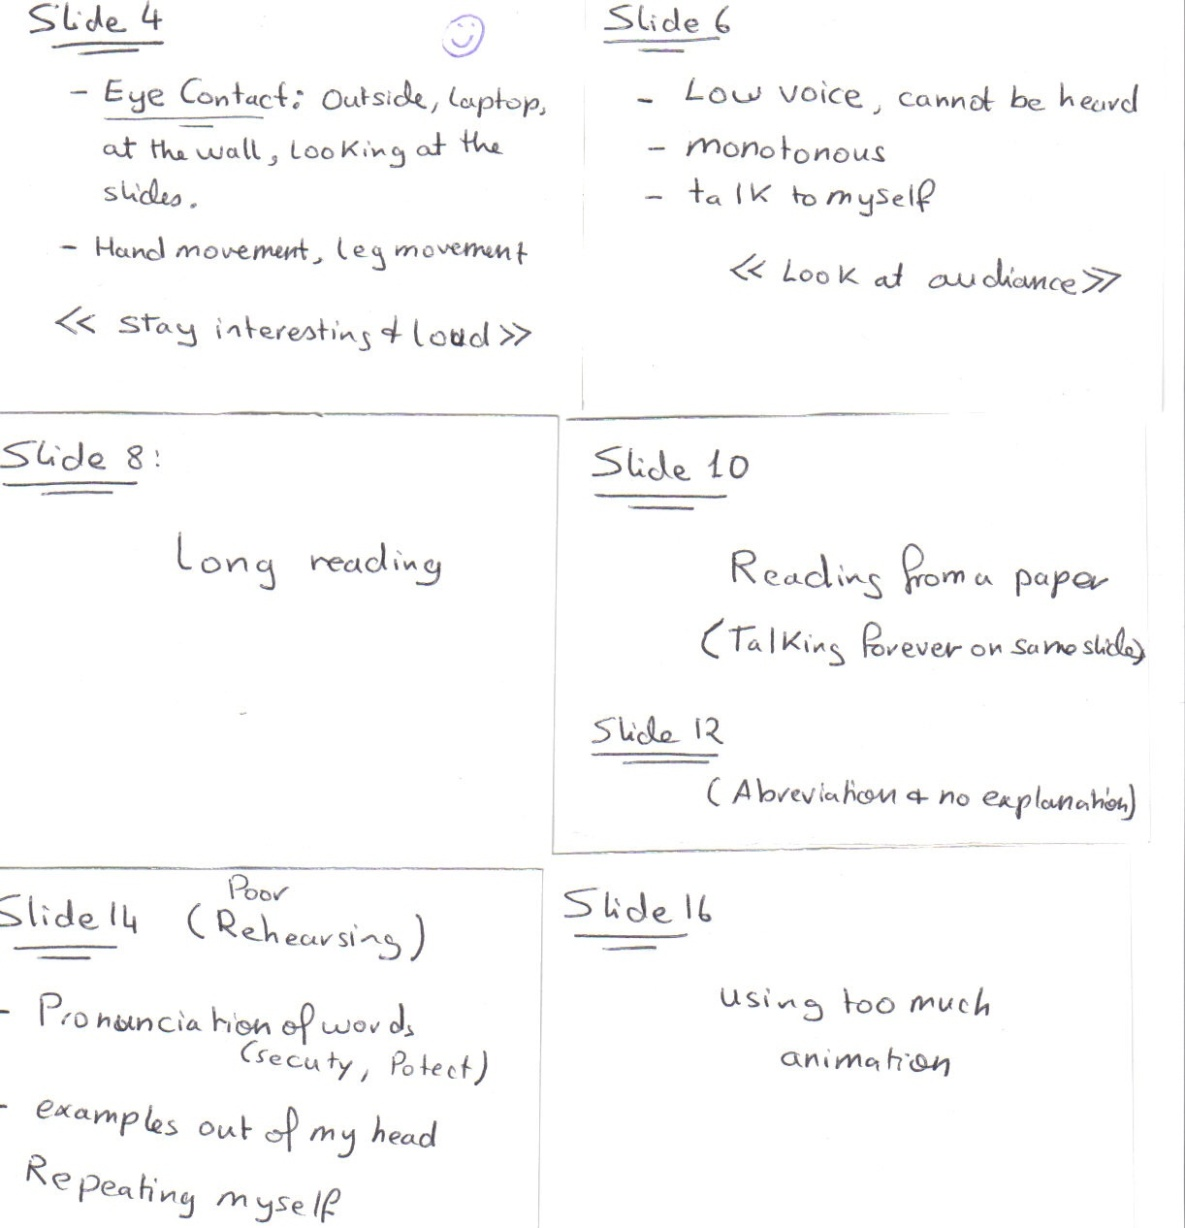 Slide 4
- Eye Contact: Outside, laptop,
at the wall, looking at the
slides.
- Hand movement, leg movement
<< stay interesting & loud >>
Slide 6
- Low voice, cannot be heard
- monotonous
- talk to myself
<< Look at audiance >>
Slide 8:
Long reading
Slide 10
Reading from a paper
(Talking forever on same slide)
Slide 12
(Abreviation & no explanation)
Slide 14 (Poor Rehearsing)
- Pronunciation of words
(secuty, Potect)
- examples out of my head
Repeating myself
Slide 16
using too much
animation